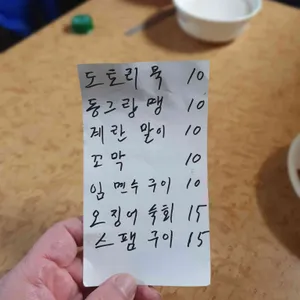 도토리묵 10
동그랑땡 10
제란 말이 10
꼬막 10
임멘수구이 10
오징어숙회 15
스팸구이 15